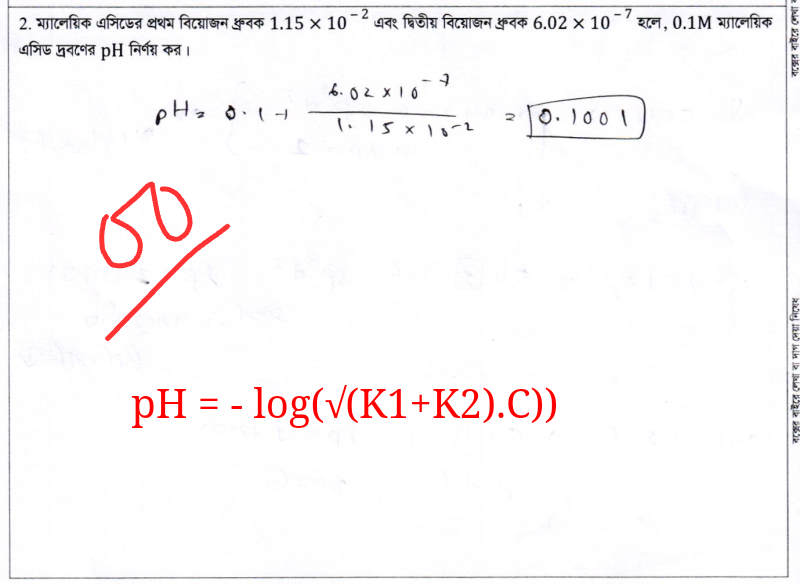 2. ম্যালেয়িক এসিডের প্রথম বিয়োজন ধ্রুবক 1.15 × 10⁻² এবং দ্বিতীয় বিয়োজন ধ্রুবক 6.02 × 10⁻⁷ হলে, 0.1M ম্যালেয়িক
এসিড দ্রবণের pH নির্ণয় কর।
pH = 0.1 + 6.02 × 10⁻⁷ / 1.15 × 10⁻² = 0.1001
00
pH = - log(√(K1+K2).C))
বক্সের বাইরে লেখা বা দাগ দেয়া নিষেধ